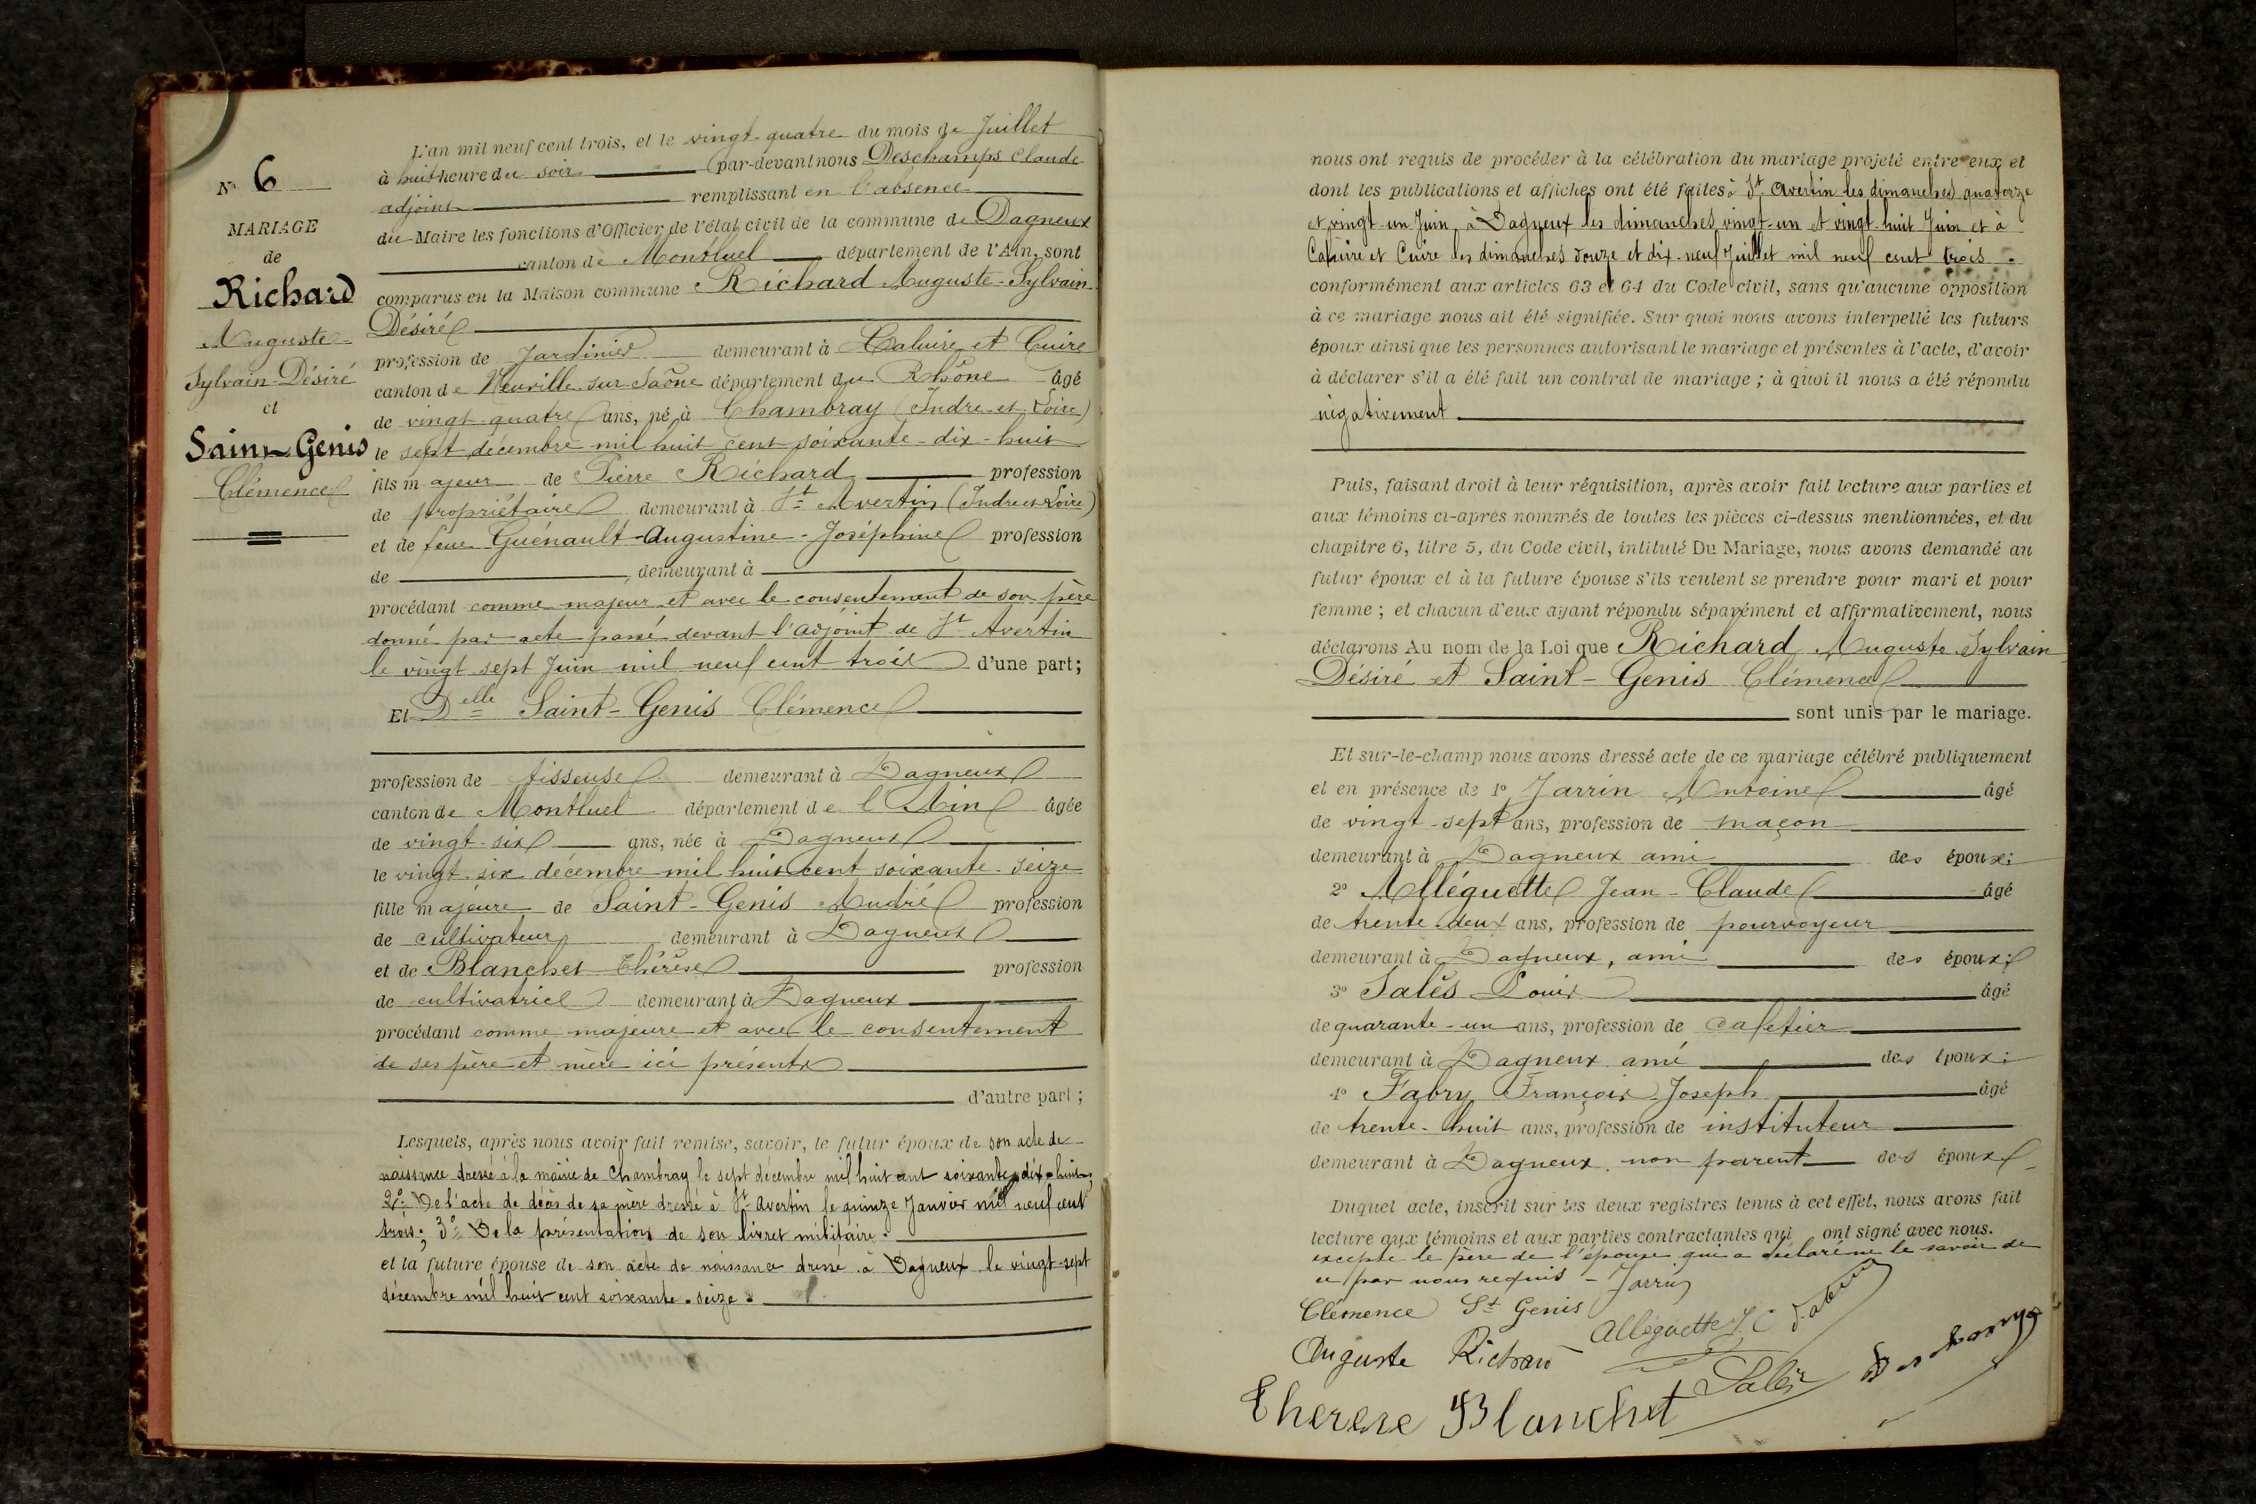 N° 6
MARIAGE
de
Richard
Auguste-
Sylvain-Désiré
et
Saint-Genis
Clémence
L'an mil neuf cent trois, et le vingt-quatre du mois de Juillet
à huit heure du soir par-devant nous Deschamps Claude
adjoint remplissant en l'absence
du Maire les fonctions d'Officier de l'état civil de la commune de Dagneux
canton de Montluel département de l'Ain, sont
comparus en la Maison commune Richard Auguste-Sylvain-
Désiré
profession de Jardinier demeurant à Caluire et Cuire
canton de Neuville-sur-Saône département du Rhône âgé
de vingt quatre ans, né à Chambray (Indre-et-Loire)
le sept décembre mil huit cent soixante-dix-huit
fils majeur de Pierre Richard profession
de propriétaire demeurant à St Avertin (Indre et Loire)
et de feue Guénault-Augustine-Joséphine profession
de , demeurant à
procédant comme majeur et avec le consentement de son père
donné par acte passé devant l'adjoint de St Avertin
le vingt sept Juin mil neuf cent trois d'une part;
Et Delle Saint-Genis Clémence
profession de tisseuse demeurant à Dagneux
canton de Montluel département de l'Ain âgée
de vingt-six ans, née à Dagneux
le vingt-six décembre mil huit cent soixante-seize
fille majeure de Saint-Genis André profession
de cultivateur demeurant à Dagneux
et de Blanchet Thérèse profession
de cultivatrice demeurant à Dagneux
procédant comme majeure et avec le consentement
de ses père et mère ici présents
d'autre part;
Lesquels, après nous avoir fait remise, savoir, le futur époux de son acte de
naissance dressé à la mairie de Chambray le sept décembre mil huit cent soixante-dix-huit;
2° De l'acte de décès de sa mère dressé à St Avertin le quinze Janvier mil neuf cent
trois; 3° De la présentation de son livret militaire.
et la future épouse de son acte de naissance dressé à Dagneux le vingt-sept
décembre mil huit cent soixante-seize.
nous ont requis de procéder à la célébration du mariage projeté entre eux et
dont les publications et affiches ont été faites à St Avertin les dimanches quatorze
et vingt-un Juin, à Dagneux les dimanches vingt-un et vingt-huit Juin et à
Caluire et Cuire les dimanches douze et dix-neuf Juillet mil neuf cent trois.
conformément aux articles 63 et 64 du Code civil, sans qu'aucune opposition
à ce mariage nous ait été signifiée. Sur quoi nous avons interpellé les futurs
époux ainsi que les personnes autorisant le mariage et présentes à l'acte, d'avoir
à déclarer s'il a été fait un contrat de mariage; à quoi il nous a été répondu
négativement
Puis, faisant droit à leur réquisition, après avoir fait lecture aux parties et
aux témoins ci-après nommés de toutes les pièces ci-dessus mentionnées, et du
chapitre 6, titre 5, du Code civil, intitulé Du Mariage, nous avons demandé au
futur époux et à la future épouse s'ils veulent se prendre pour mari et pour
femme; et chacun d'eux ayant répondu séparément et affirmativement, nous
déclarons Au nom de la Loi que Richard Auguste Sylvain
Désiré et Saint-Genis Clémence
sont unis par le mariage.
Et sur-le-champ nous avons dressé acte de ce mariage célébré publiquement
et en présence de 1° Jarrin Antoine âgé
de vingt-sept ans, profession de maçon
demeurant à Dagneux ami des époux;
2° Alléguette Jean-Claude âgé
de trente-deux ans, profession de pourvoyeur
demeurant à Dagneux, ami des époux;
3° Salès Louis âgé
de quarante-un ans, profession de cafetier
demeurant à Dagneux ami des époux;
4° Fabry François Joseph âgé
de trente-huit ans, profession de instituteur
demeurant à Dagneux non parent des époux
Duquel acte, inscrit sur les deux registres tenus à cet effet, nous avons fait
lecture aux témoins et aux parties contractantes qui ont signé avec nous.
excepté le père de l'épouse qui a déclaré ne le savoir de
ce par nous requis - Jarrin
Clémence St Genis
Alléguette J. C Fabry
Auguste Richard
Salès Deschamps
Therese Blanchet